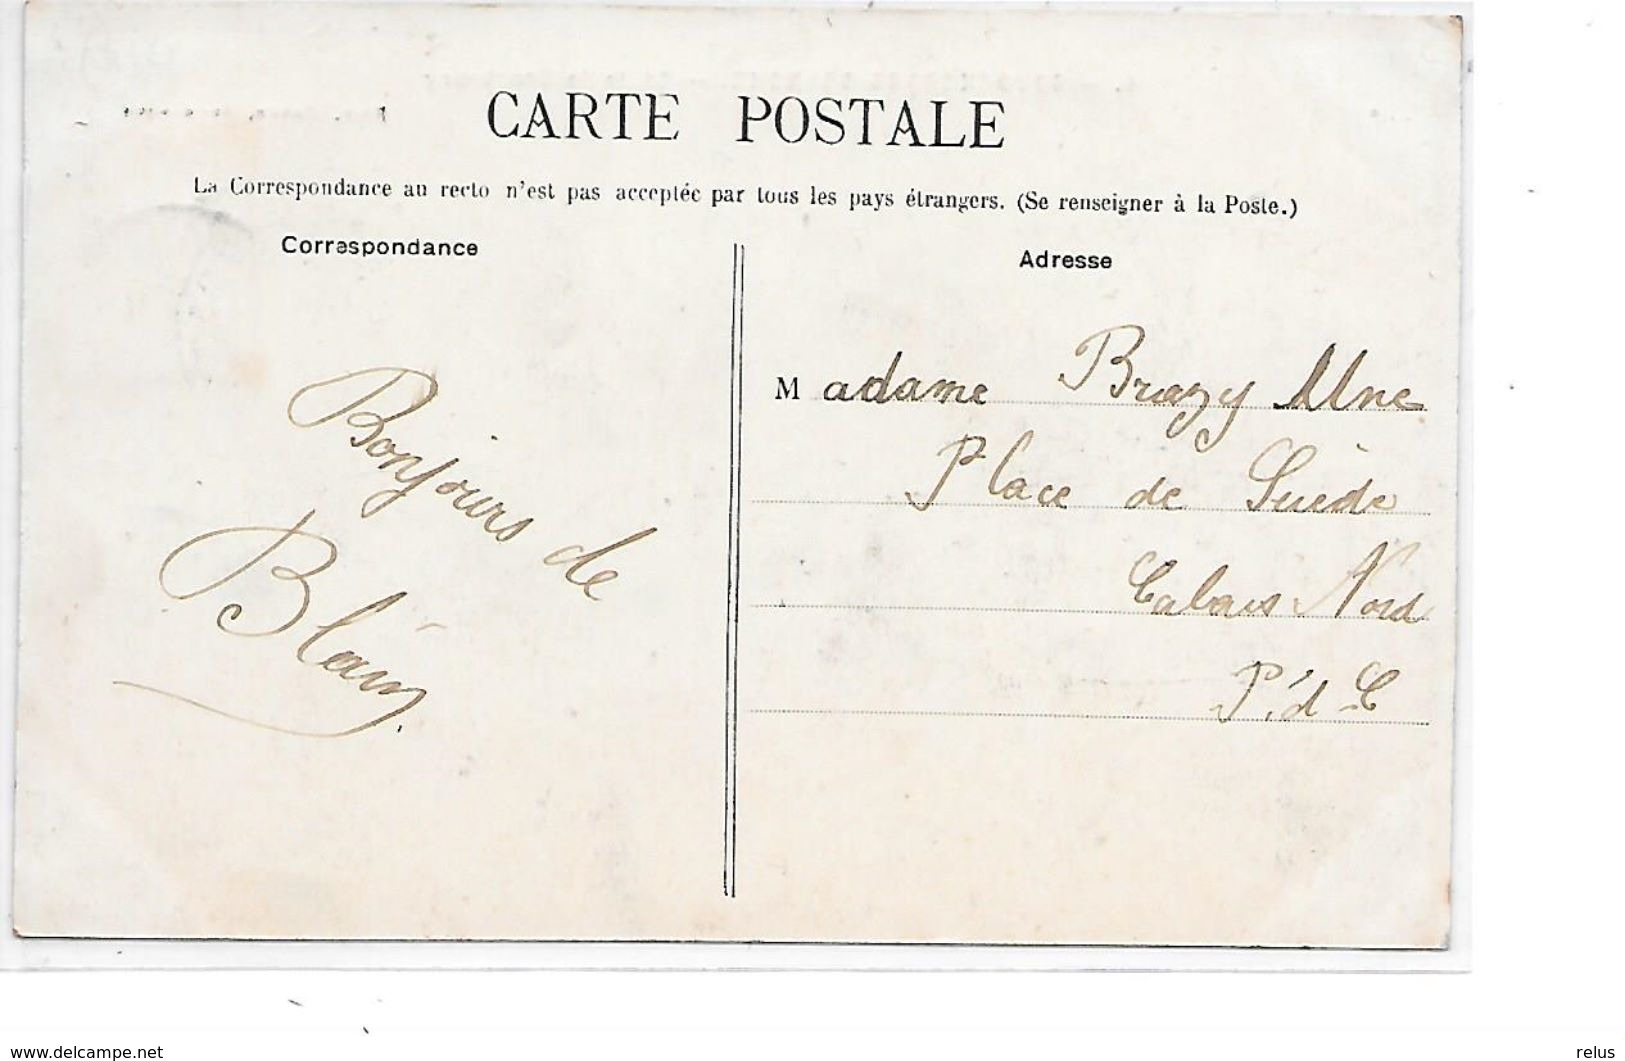 CARTE POSTALE
La Correspondance au recto n'est pas acceptée par tous les pays étrangers. (Se renseigner à la Poste.)
Correspondance
Bonjours de
Blain
Adresse
Madame Brazy
Place de Suède
Calais Nord
P. d C
www.delcampe.net
relus